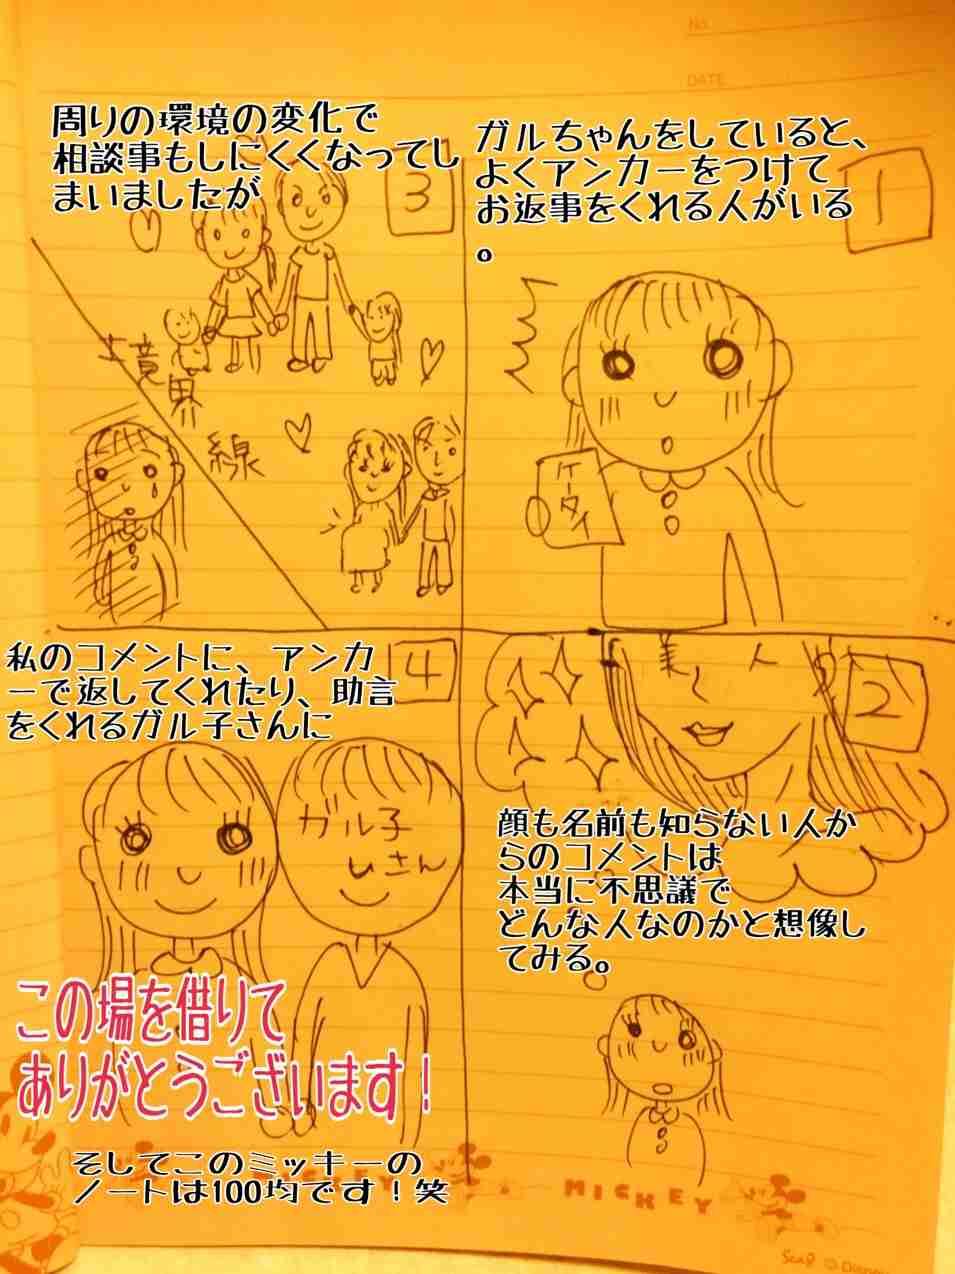 No.
DATE
1
ガルちゃんをしていると、
よくアンカーをつけて
お返事をくれる人がいる
。
ケータイ
2
美人
顔も名前も知らない人か
らのコメントは
本当に不思議で
どんな人なのかと想像し
てみる。
3
周りの環境の変化で
相談事もしにくくなってし
まいましたが
境界線
4
私のコメントに、アンカ
ーで返してくれたり、助言
をくれるガル子さんに
ガル子
さん
この場を借りて
ありがとうございます！
そしてこのミッキーの
ノートは100均です！笑
MICKEY